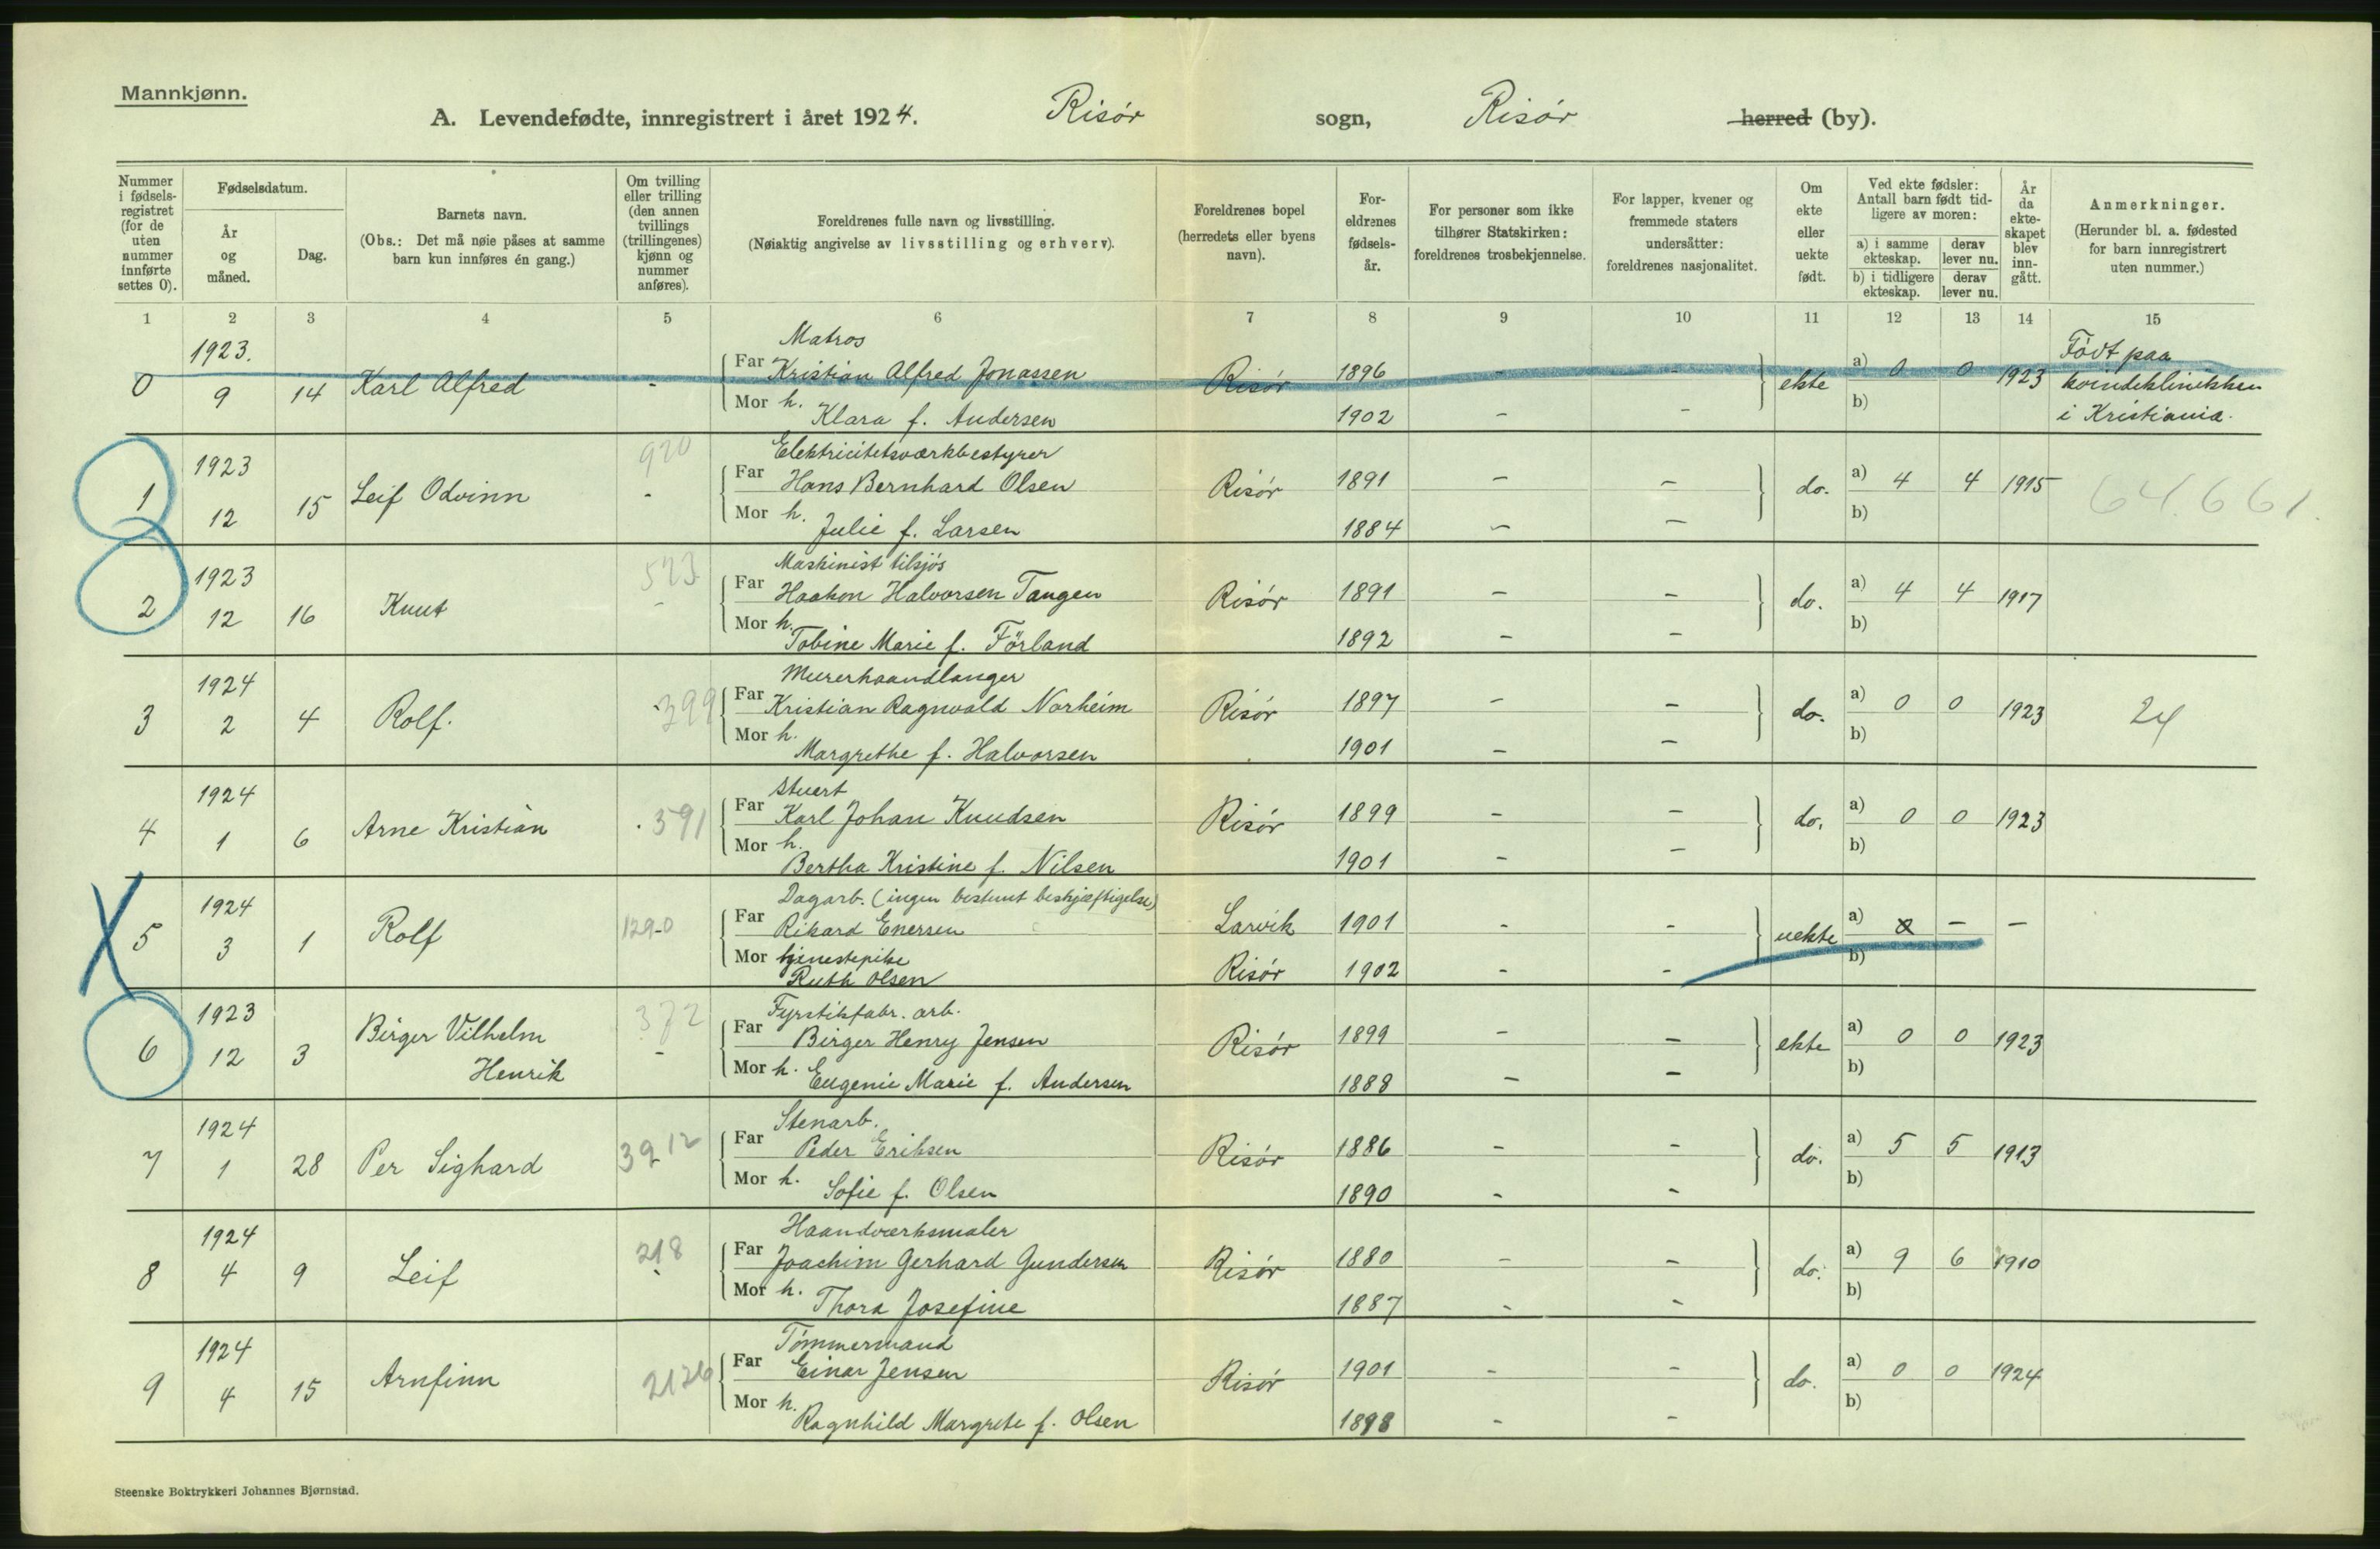 Mannkjønn.
A. Levendefødte, innregistrert i året 1924. Risör sogn, Risör herred (by).
Nummer i fødselsregistret (for de uten nummer innførte settes 0).
Fødselsdatum.
År og måned.
Dag.
Barnets navn.
(Obs.: Det må nøie påses at samme barn kun innføres én gang.)
Om tvilling eller trilling (den annen tvillings (trillingenes) kjønn og nummer anføres).
Foreldrenes fulle navn og livsstilling.
(Nøiaktig angivelse av livsstilling og erhverv).
Foreldrenes bopel (herredets eller byens navn).
Foreldrenes fødselsår.
For personer som ikke tilhører Statskirken: foreldrenes trosbekjennelse.
For lapper, kvener og fremmede staters undersåtter: foreldrenes nasjonalitet.
Om ekte eller uekte født.
Ved ekte fødsler: Antall barn født tidligere av moren:
a) i samme ekteskap. derav lever nu.
b) i tidligere ekteskap. derav lever nu.
År da ekteskapet blev inngått.
Anmerkninger.
(Herunder bl. a. fødested for barn innregistrert uten nummer.)
1 2 3 4 5 6 7 8 9 10 11 12 13 14 15
1923. Matros Födt paa
0 9 14 Karl Alfred - Far Kristian Alfred Jonassen Risör 1896 - - ekte a) 0 0 1923 kvindeklinikken
Mor h. Klara f. Andersen 1902 - - b) i Kristiania.
1923 920 Elektricitetsværkbestyrer
1 12 15 Leif Odvinn - Far Hans Bernhard Olsen Risör 1891 - - do. a) 4 4 1915 64.661.
Mor h. Julie f. Larsen 1884 - - b)
1923 523 Maskinist tilsjös
2 12 16 Knut - Far Haakon Halvorsen Tangen Risör 1891 - - do. a) 4 4 1917
Mor h. Tobine Marie f. Förland 1892 - - b)
1924 Murerhaandlanger
3 2 4 Rolf. 399 Far Kristian Ragnvald Norheim Risör 1897 - - do. a) 0 0 1923 24
Mor h. Margrethe f. Halvorsen 1901 - - b)
1924 Stuert
4 1 6 Arne Kristian 391 Far Karl Johan Knudsen Risör 1899 - - do. a) 0 0 1923
Mor h. Bertha Kristine f. Nilsen 1901 - - b)
1924 Dagarb. (ingen bestemt beskjæftigelse)
5 3 1 Rolf 1290 Far Rikard Enersen Larvik 1901 - - uekte a) 0 - -
Mor tjenestepike Ruth Olsen Risör 1902 - - b)
1923 372 Fyrstikfabr. arb.
6 12 3 Birger Vilhelm Henrik - Far Birger Henry Jensen Risör 1899 - - ekte a) 0 0 1923
Mor h. Eugenie Marie f. Andersen 1888 - - b)
1924 Stenarb.
7 1 28 Per Sighard 3912 Far Peder Eriksen Risör 1886 - - do. a) 5 5 1913
Mor h. Sofie f. Olsen 1890 - - b)
1924 Haandværksmaler
8 4 9 Leif 218 Far Joachim Gerhard Gundersen Risör 1880 - - do. a) 9 6 1910
Mor h. Thora Josefine 1887 - - b)
1924 Tömmermand
9 4 15 Arnfinn 2126 Far Einar Jensen Risör 1901 - - do. a) 0 0 1924
Mor h. Ragnhild Margrete f. Olsen 1898 - - b)
Steenske Boktrykkeri Johannes Bjørnstad.